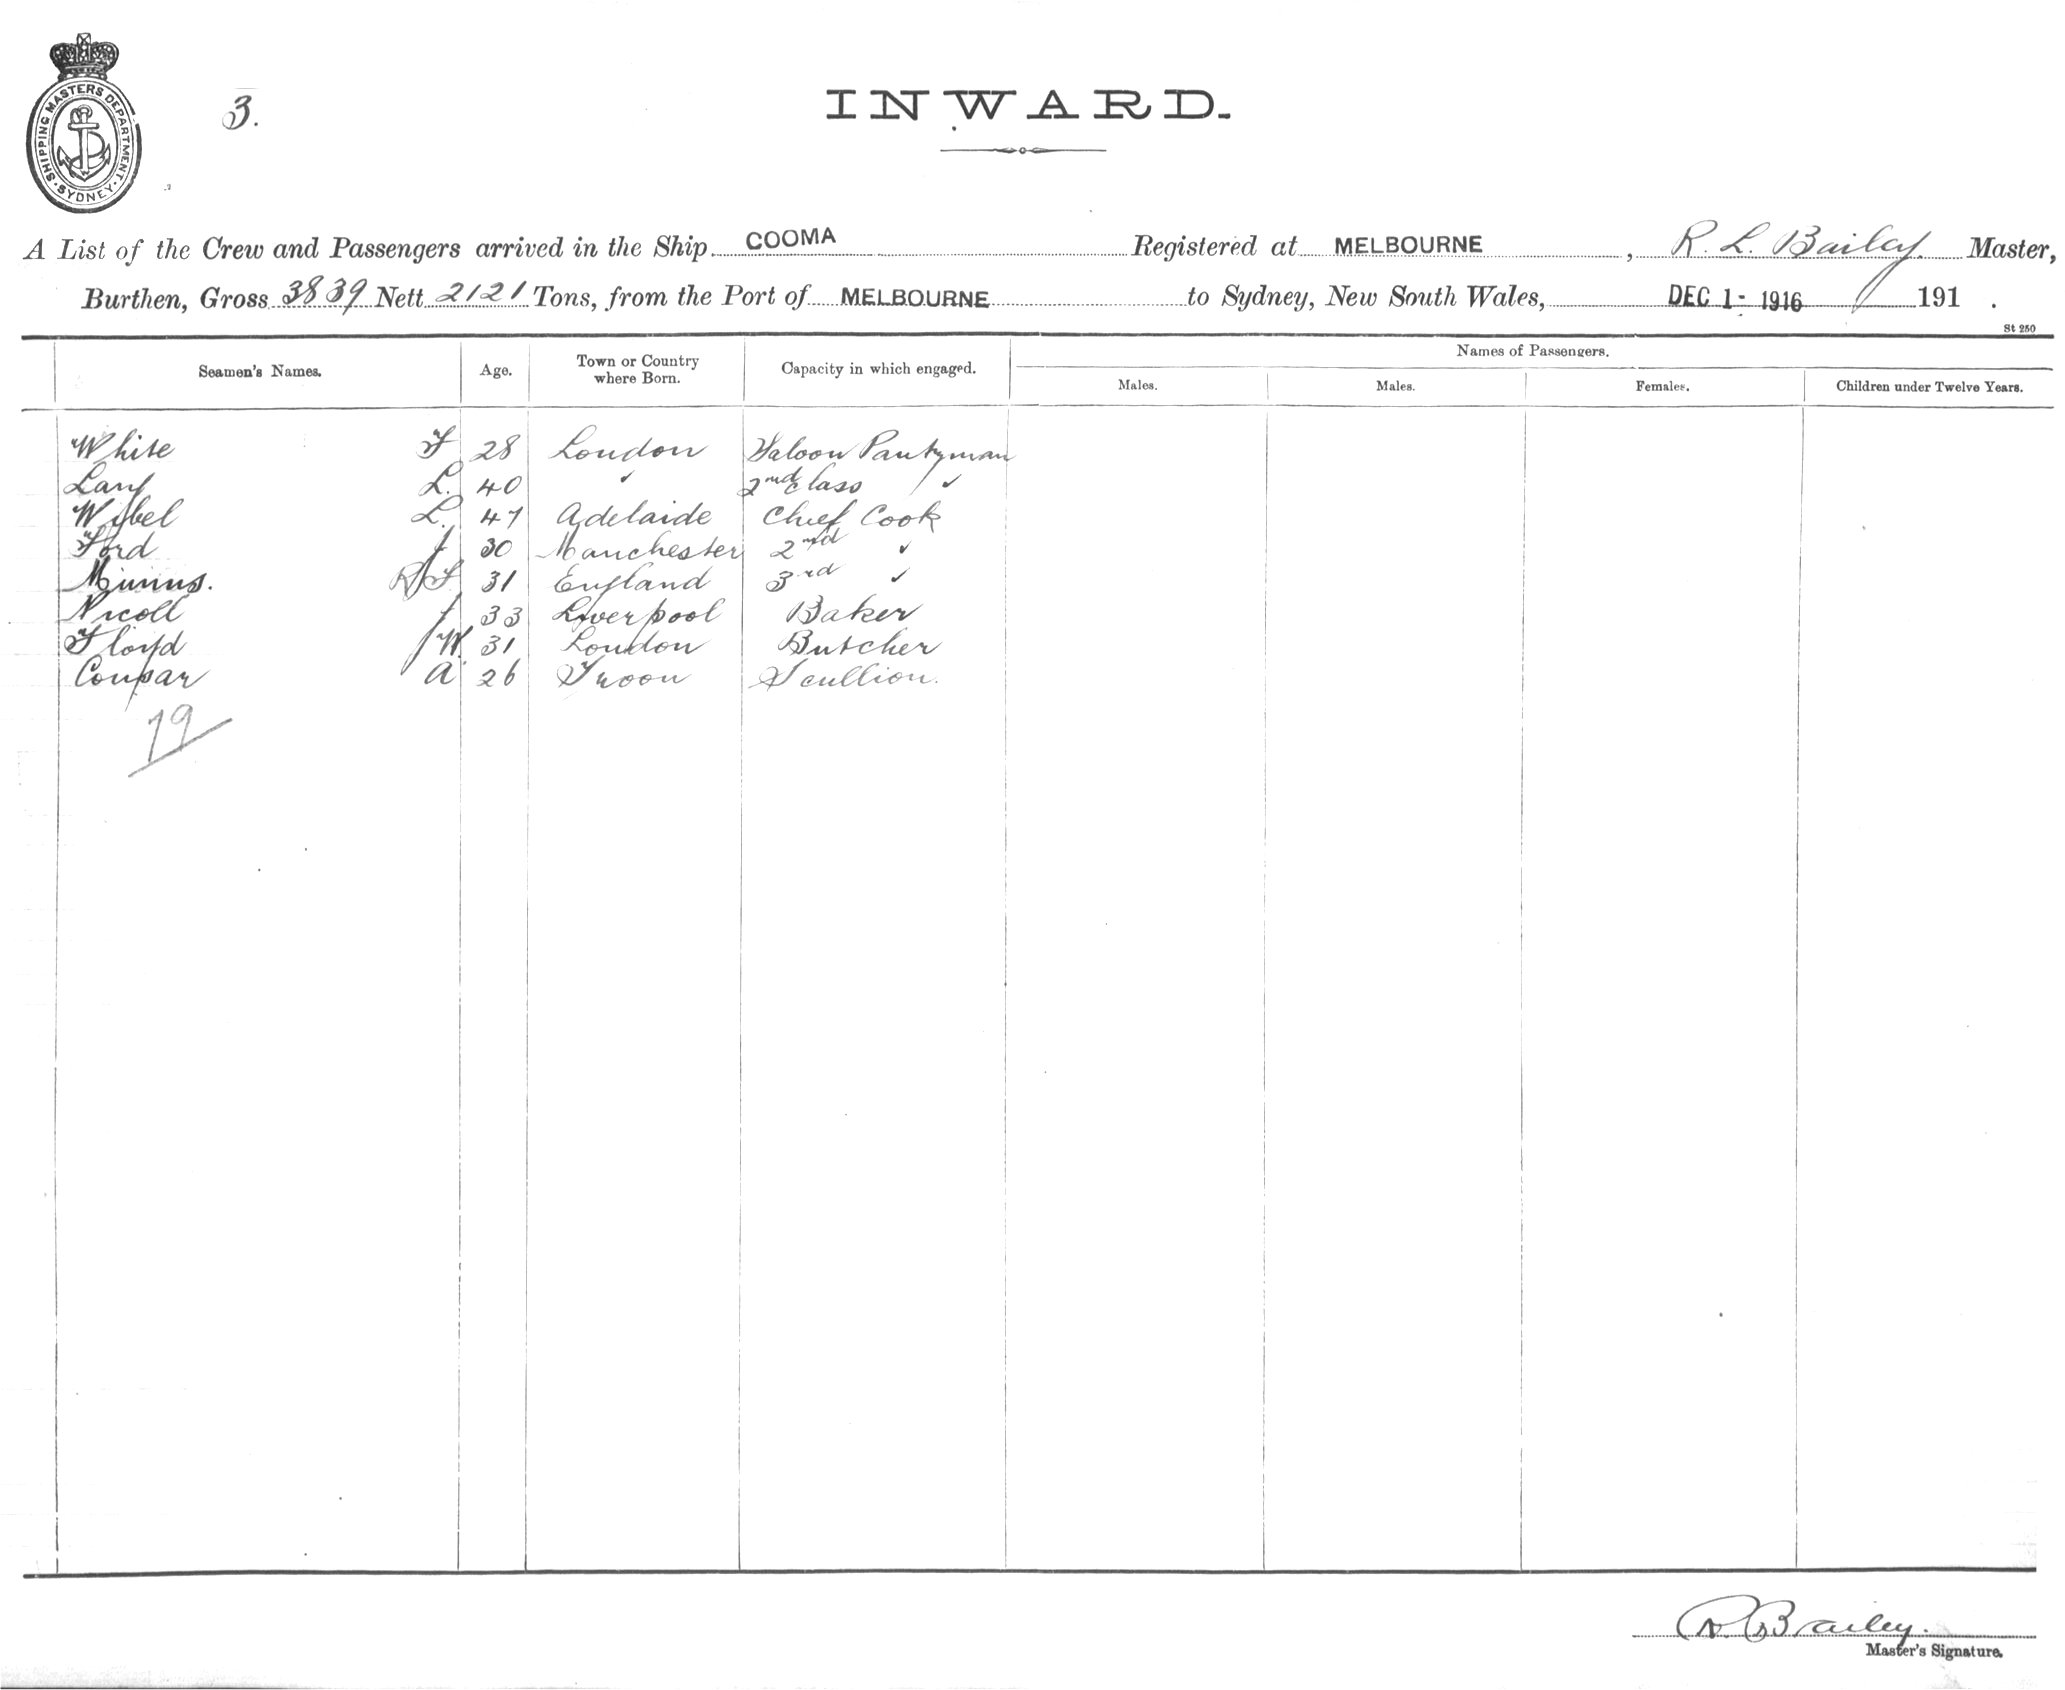 SHIPPING MASTERS DEPARTMENT. SYDNEY.
3.
INWARD.
A List of the Crew and Passengers arrived in the Ship COOMA Registered at MELBOURNE, R. L. Bailey Master,
Burthen, Gross 3839 Nett 2121 Tons, from the Port of MELBOURNE to Sydney, New South Wales, DEC 1 - 1916 191 .
St 250
Seamen's Names. Age. Town or Country where Born. Capacity in which engaged. Names of Passengers.
Males. Males. Females. Children under Twelve Years.
White F 28 London Saloon Pantryman
L. 40 " 2nd Class "
L. 47 Adelaide Chief Cook
Ford J 30 Manchester 2nd "
R J 31 England 3rd "
Nicoll J 33 Liverpool Baker
Floyd J W. 31 London Butcher
Coupar A 26 Troon Scullion.
79
R L Bailey.
Master's Signature.